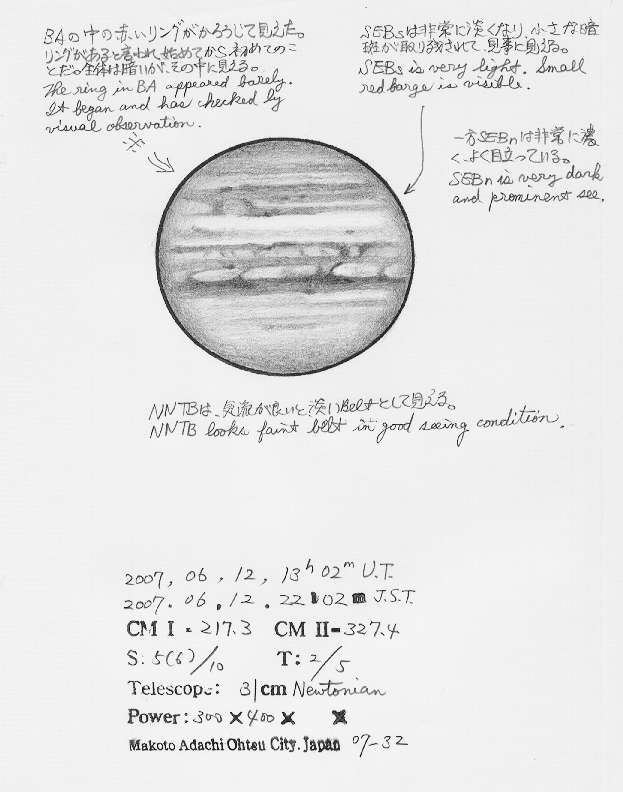 BAの中の赤いリングがかろうじて見えた。
リングがあると言われ始めてから初めてのこ
とだ。全体は暗いが、その中に見える。
The ring in BA appeared barely.
It began and has checked by
visual observation.
SEBsは非常に淡くなり、小さな暗
斑が取り残されて、見事に見える。
SEBs is very light. Small
red barge is visible.
一方SEBnは非常に濃
く、よく目立っている。
SEBn is very dark
and prominent see.
NNTBは、気流が良いと淡いBeltとして見える。
NNTB looks faint belt in good seeing condition.
2007, 06, 12, 13h 02m U.T.
2007. 06. 12. 22 02 J.S.T.
CM I = 217.3 CM II = 327.4
S: 5(6)/10 T: 2/5
Telescope: 31cm Newtonian
Power: 300 × 400 × ×
Makoto Adachi Ohtsu City. Japan 07-32